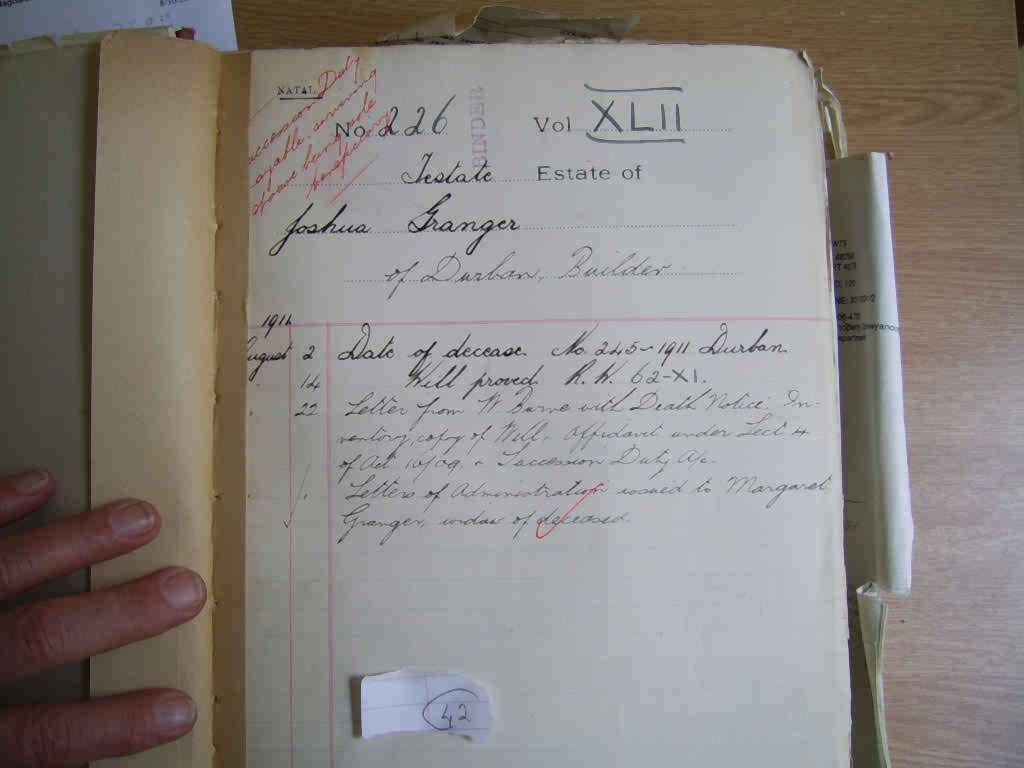 NATAL
Succession Duty
payable. surviving
spouse being sole
beneficiary
BINDER
No. 226 Vol XLII
Testate Estate of
Joshua Granger
of Durban, Builder
1911
August 2 Date of decease. No. 245-1911 Durban.
" 14 Will proved. R.W. 62-XI.
" 22 Letter from W Burne with Death Notice. In-
ventory, copy of Will, Affidavit under Sect 4
of Act 10/09, & Succession Duty A/c.
Letters of Administration issued to Margaret
Granger, widow of deceased.
42